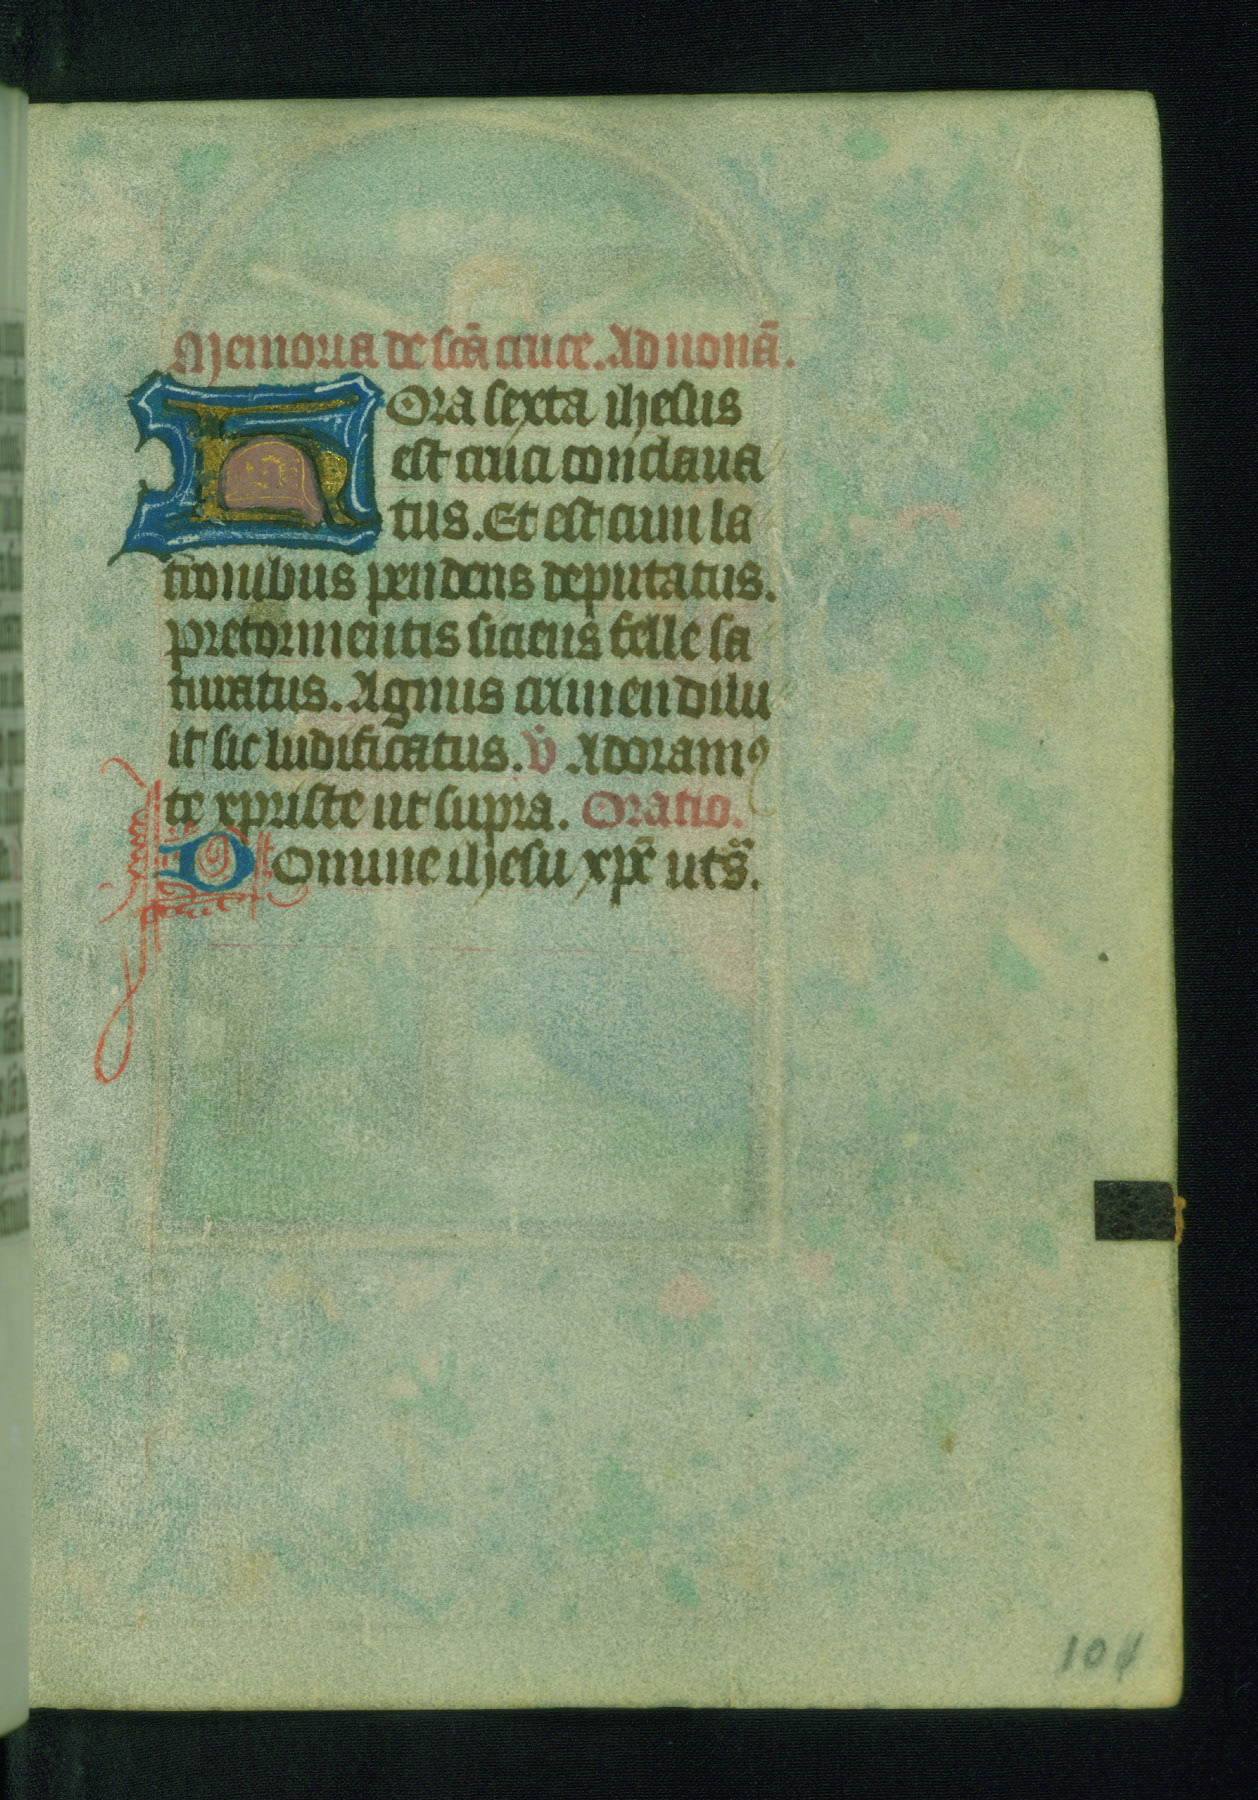 Memoria de scā cruce. Ad nonā.
hOra sexta ihesus
est cruci conclaua
tus. Et est cum la
tronibus pendens deputatus.
pretormentis siciens felle sa
turatus. Agnus crimen dilu
it sic ludificatus. v̄ Adoramꝰ
te xpriste ut supra. Oratio.
Domine ihesu xpē uts̄.
104